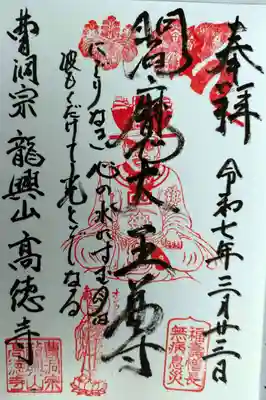 奉拝
令和七年三月廿三日
閻魔大王尊
にごりなき心の水にすむ月は
波もくだけて光とぞなる
曹洞宗 龍興山 高徳寺
福寿増長
無病息災
曹洞宗
龍興山
高徳寺